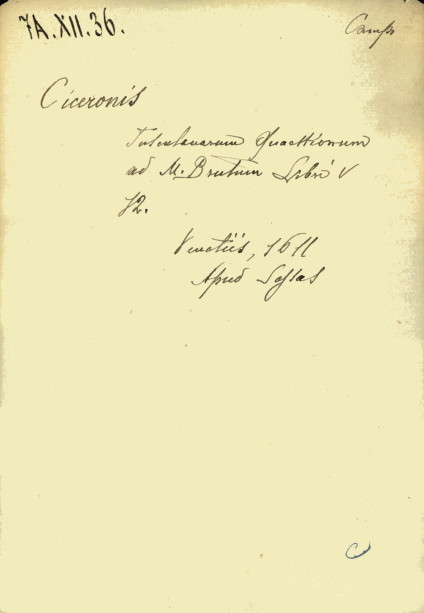 7A.XII.36.
Ciceronis
Tusculanarum Quaestionum
ad M. Brutum Libri V
12.
Venetiis, 1611
Apud Sessas